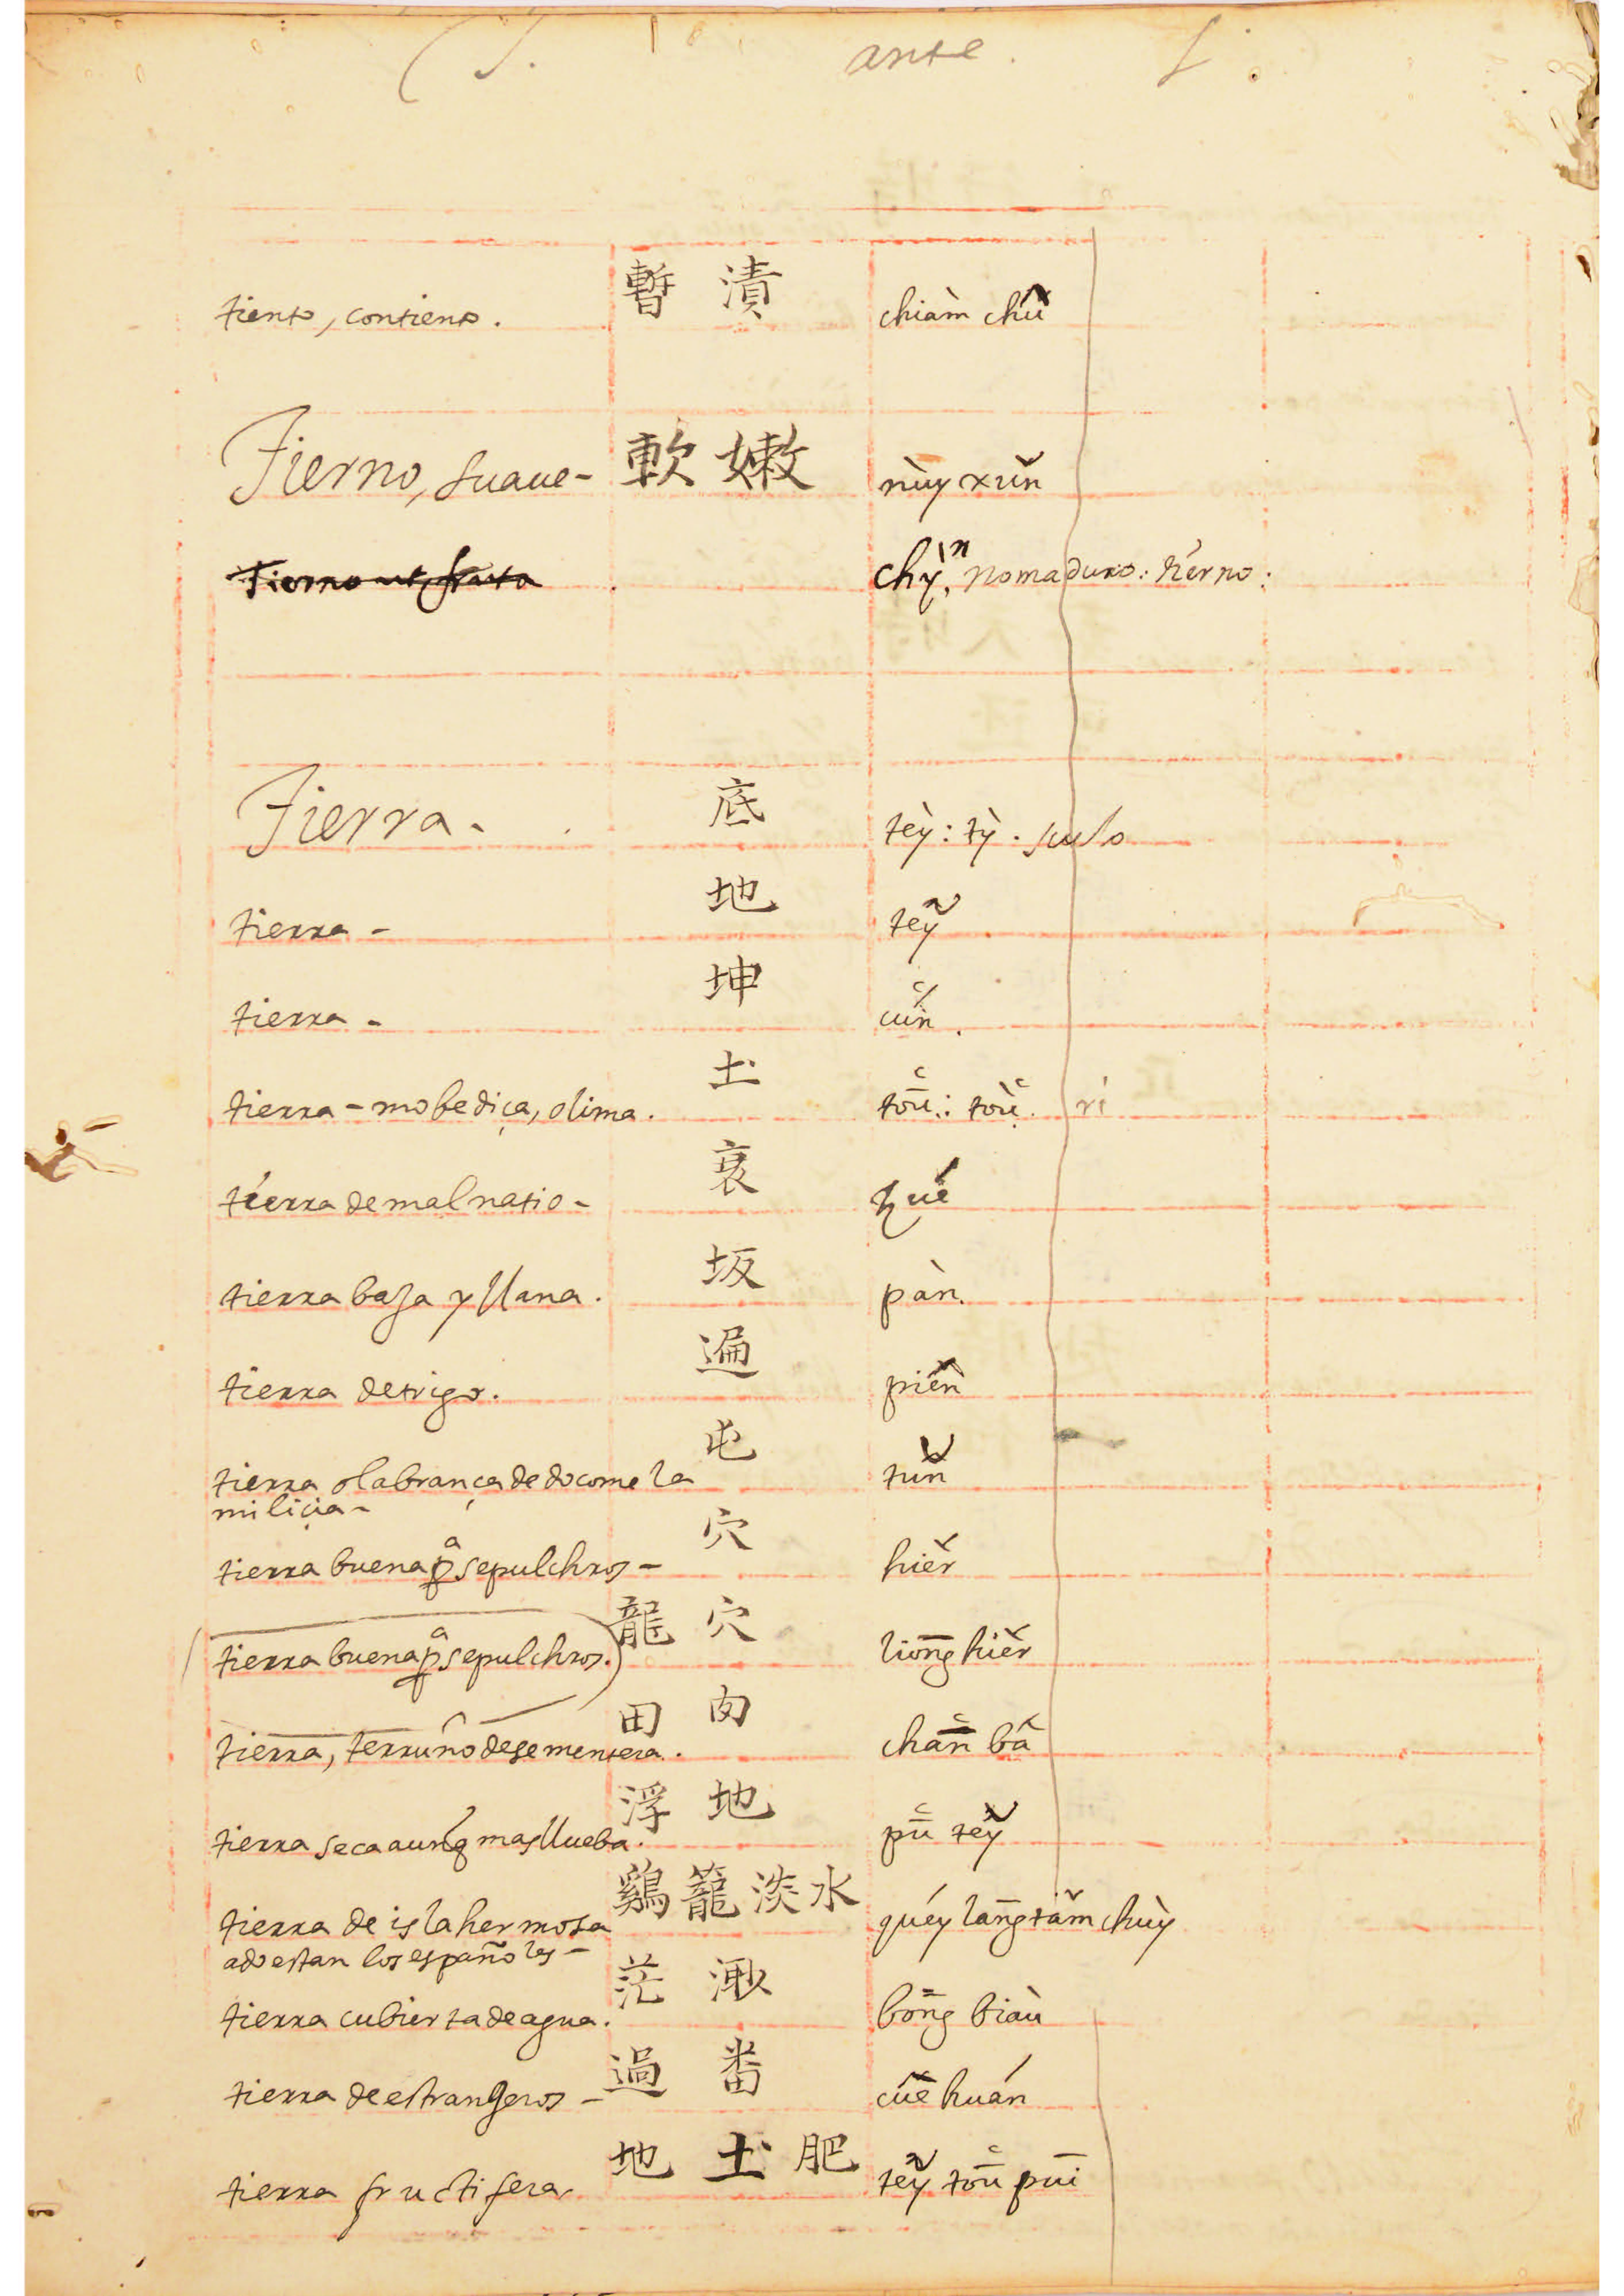 T. ante. I.
tiento, contiento. 暫 漬 chiàm chǔ
Tierno, suaue- 軟 嫩 nùy xŭn
Tierno ut fruta chỳⁿ, no maduro: tierno:
Tierra. 底 tèy: tỳ. suelo
tierra - 地 teỹ
tierra - 坤 cuń.
tierra - mobediça, olima. 圡 toū: toù. ri
tierra de mal natio - 衰 zué
tierra baja y llana. 坂 pàn.
tierra de trigo. 遍 piên
tierra olabrança de do come la 屯 tŭn
miliçia -
tierra buena pª sepulchros - 穴 hiěr
tierra buena pª sepulchros. 龍 穴 liōng hiěr
tierra, terruño de sementera. 田 肉 chān bâ
tierra seca aunq mas llueba. 浮 地 pū teỹ
tierra de isla hermosa 鷄 籠 淡 水 quéy lāng tâm chùy
ado estan los españoles -
tierra cubierta de agua. 茫 bōng biàu
tierra de estrangeros - 過 畨 cûe huán
tierra fructifera 地 圡 肥 teỹ toū pūi